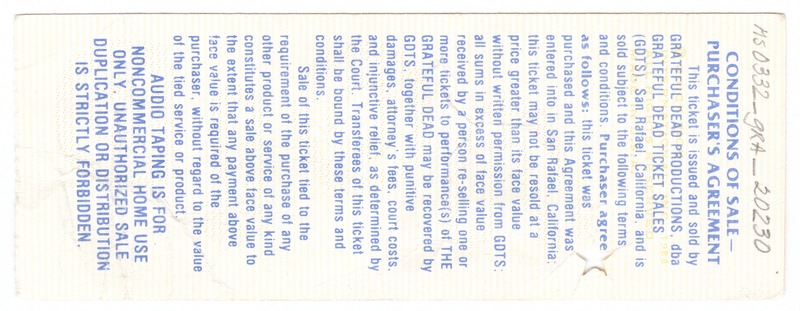 MS0332_GRA_20230
CONDITIONS OF SALE—
PURCHASER'S AGREEMENT
This ticket is issued and sold by
GRATEFUL DEAD PRODUCTIONS, dba
GRATEFUL DEAD TICKET SALES
(GDTS), San Rafael, California, and is
sold subject to the following terms
and conditions. Purchaser agrees
as follows: this ticket was
purchased and this Agreement was
entered into in San Rafael, California;
this ticket may not be resold at a
price greater than its face value
without written permission from GDTS;
all sums in excess of face value
received by a person re-selling one or
more tickets to performance(s) of THE
GRATEFUL DEAD may be recovered by
GDTS, together with punitive
damages, attorney's fees, court costs,
and injunctive relief, as determined by
the Court. Transferees of this ticket
shall be bound by these terms and
conditions.
Sale of this ticket tied to the
requirement of the purchase of any
other product or service of any kind
constitutes a sale above face value to
the extent that any payment above
face value is required of the
purchaser, without regard to the value
of the tied service or product.
AUDIO TAPING IS FOR
NONCOMMERCIAL HOME USE
ONLY. UNAUTHORIZED SALE
DUPLICATION OR DISTRIBUTION
IS STRICTLY FORBIDDEN.